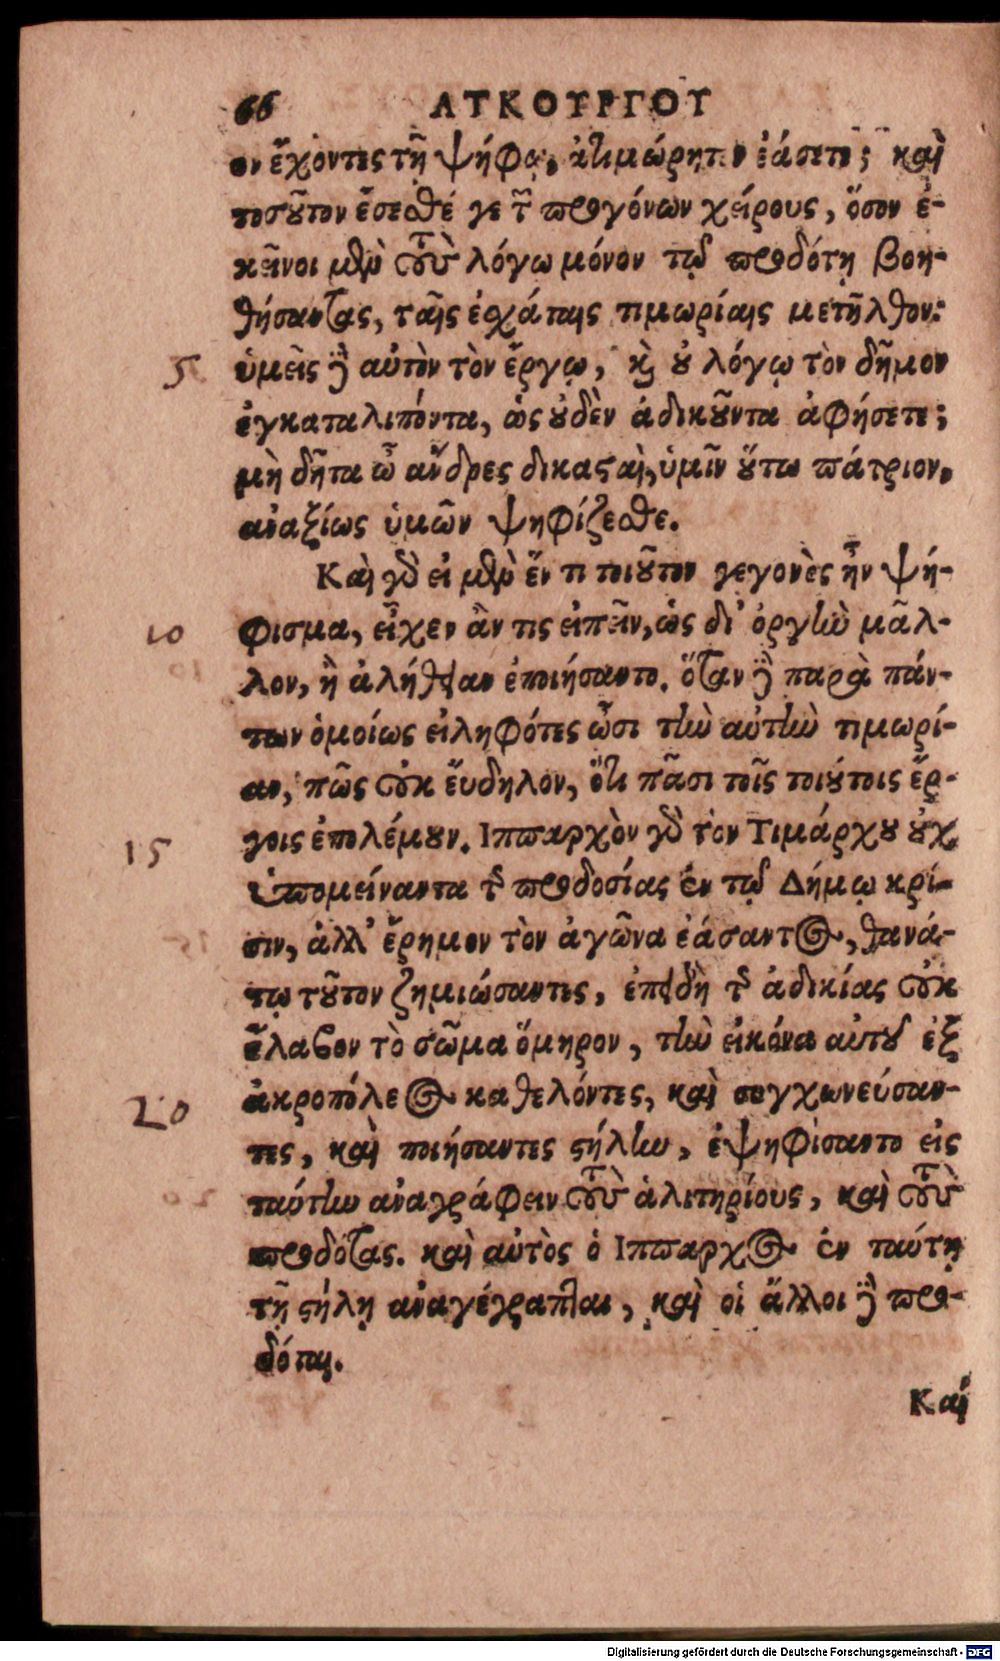 66 ΛΥΚΟΥΡΓΟΥ
ον ἔχοντες τῇ ψήφῳ, ἀτιμώρητον ἐάσετε; καὶ
τοσοῦτον ἔσεσθέ γε τῶν προγόνων χείρους, ὅσον ἐ-
κεῖνοι μὲν τοὺς λόγω μόνον τῷ προδότῃ βοη-
θήσαντας, ταῖς ἐσχάταις τιμωρίαις μετῆλθον:
5 ὑμεῖς δὲ αὐτὸν τὸν ἔργῳ, καὶ οὐ λόγῳ τὸν δῆμον
ἐγκαταλιπόντα, ὡς οὐδὲν ἀδικοῦντα ἀφήσετε;
μὴ δῆτα ὦ ἄνδρες δικασταὶ, ὑμῖν οὕτω πάτριον,
ἀναξίως ὑμῶν ψηφίζεσθε.
Καὶ γὰρ εἰ μὲν ἕν τι τοιοῦτον γεγονὸς ἦν ψή-
10 φισμα, εἶχεν ἂν τις εἰπεῖν, ὡς δι' ὀργὴν μᾶλ-
λον, ἢ ἀλήθειαν ἐποιήσαντο. ὅταν δὲ παρὰ πάν-
των ὁμοίως εἰληφότες ὦσι τὴν αὐτὴν τιμωρί-
αν, πῶς οὐκ εὔδηλον, ὅτι πᾶσι τοῖς τοιούτοις ἔρ-
γοις ἐπολέμουν. Ιππαρχὸν γὰρ τὸν Τιμάρχου οὐχ
15 ὑπομείναντα τῆς προδοσίας ἐν τῷ Δήμῳ κρί-
σιν, ἀλλ' ἔρημον τὸν ἀγῶνα ἐάσαντος, θανά-
τῳ τοῦτον ζημιώσαντες, ἐπειδὴ τῆς ἀδικίας οὐκ
ἔλαβον τὸ σῶμα ὅμηρον, τὴν εἰκόνα αὐτοῦ ἐξ
ἀκροπόλεως καθελόντες, καὶ συγχωνεύσαν-
20 τες, καὶ ποιήσαντες στήλην, ἐψηφίσαντο εἰς
ταύτην ἀναγράφειν τοὺς ἀλιτηρίους, καὶ τοὺς
προδότας. καὶ αὐτὸς ὁ Ιππαρχος ἐν ταύτῃ
τῇ στήλῃ ἀναγέγραπται, καὶ οἱ ἄλλοι δὲ προ-
δόται.
Καὶ
Digitalisierung gefördert durch die Deutsche Forschungsgemeinschaft - DFG